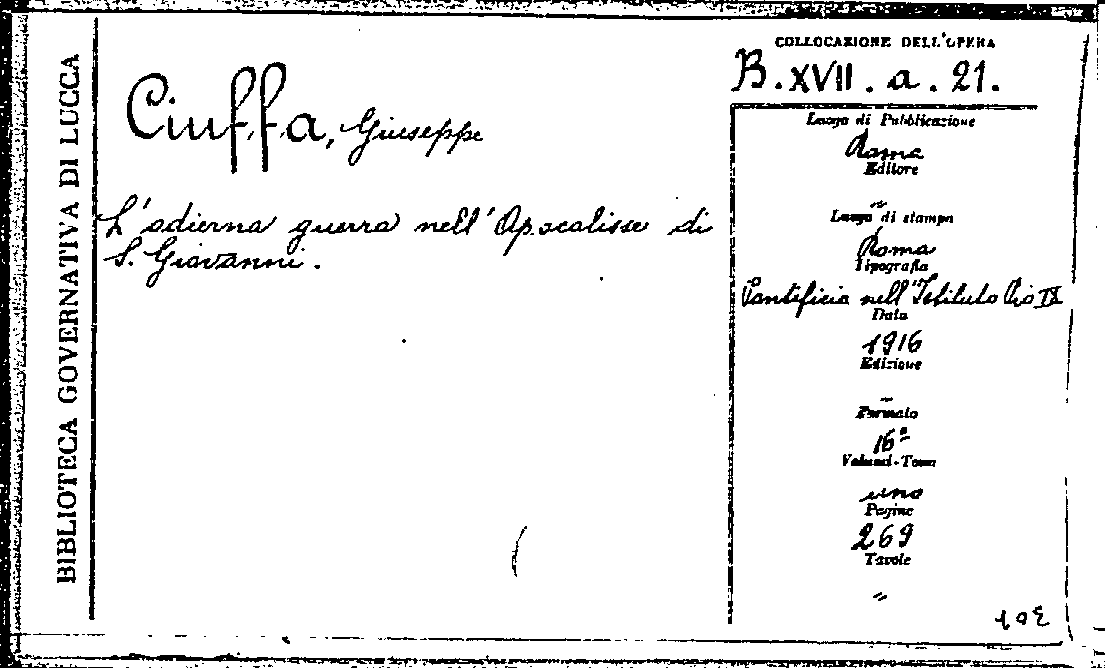 BIBLIOTECA GOVERNATIVA DI LUCCA
Ciuffa, Giuseppe
L'odierna guerra nell'Apocalisse di
S. Giovanni.
COLLOCAZIONE DELL'OPERA
B. XVII. a. 21.
Luogo di Pubblicazione
Roma
Editore
"
Luogo di stampa
Roma
Tipografia
Pontificia nell'Istituto Pio IX
Data
1916
Edizione
"
Formato
16º
Volumi-Tomi
uno
Pagine
269
Tavole
"